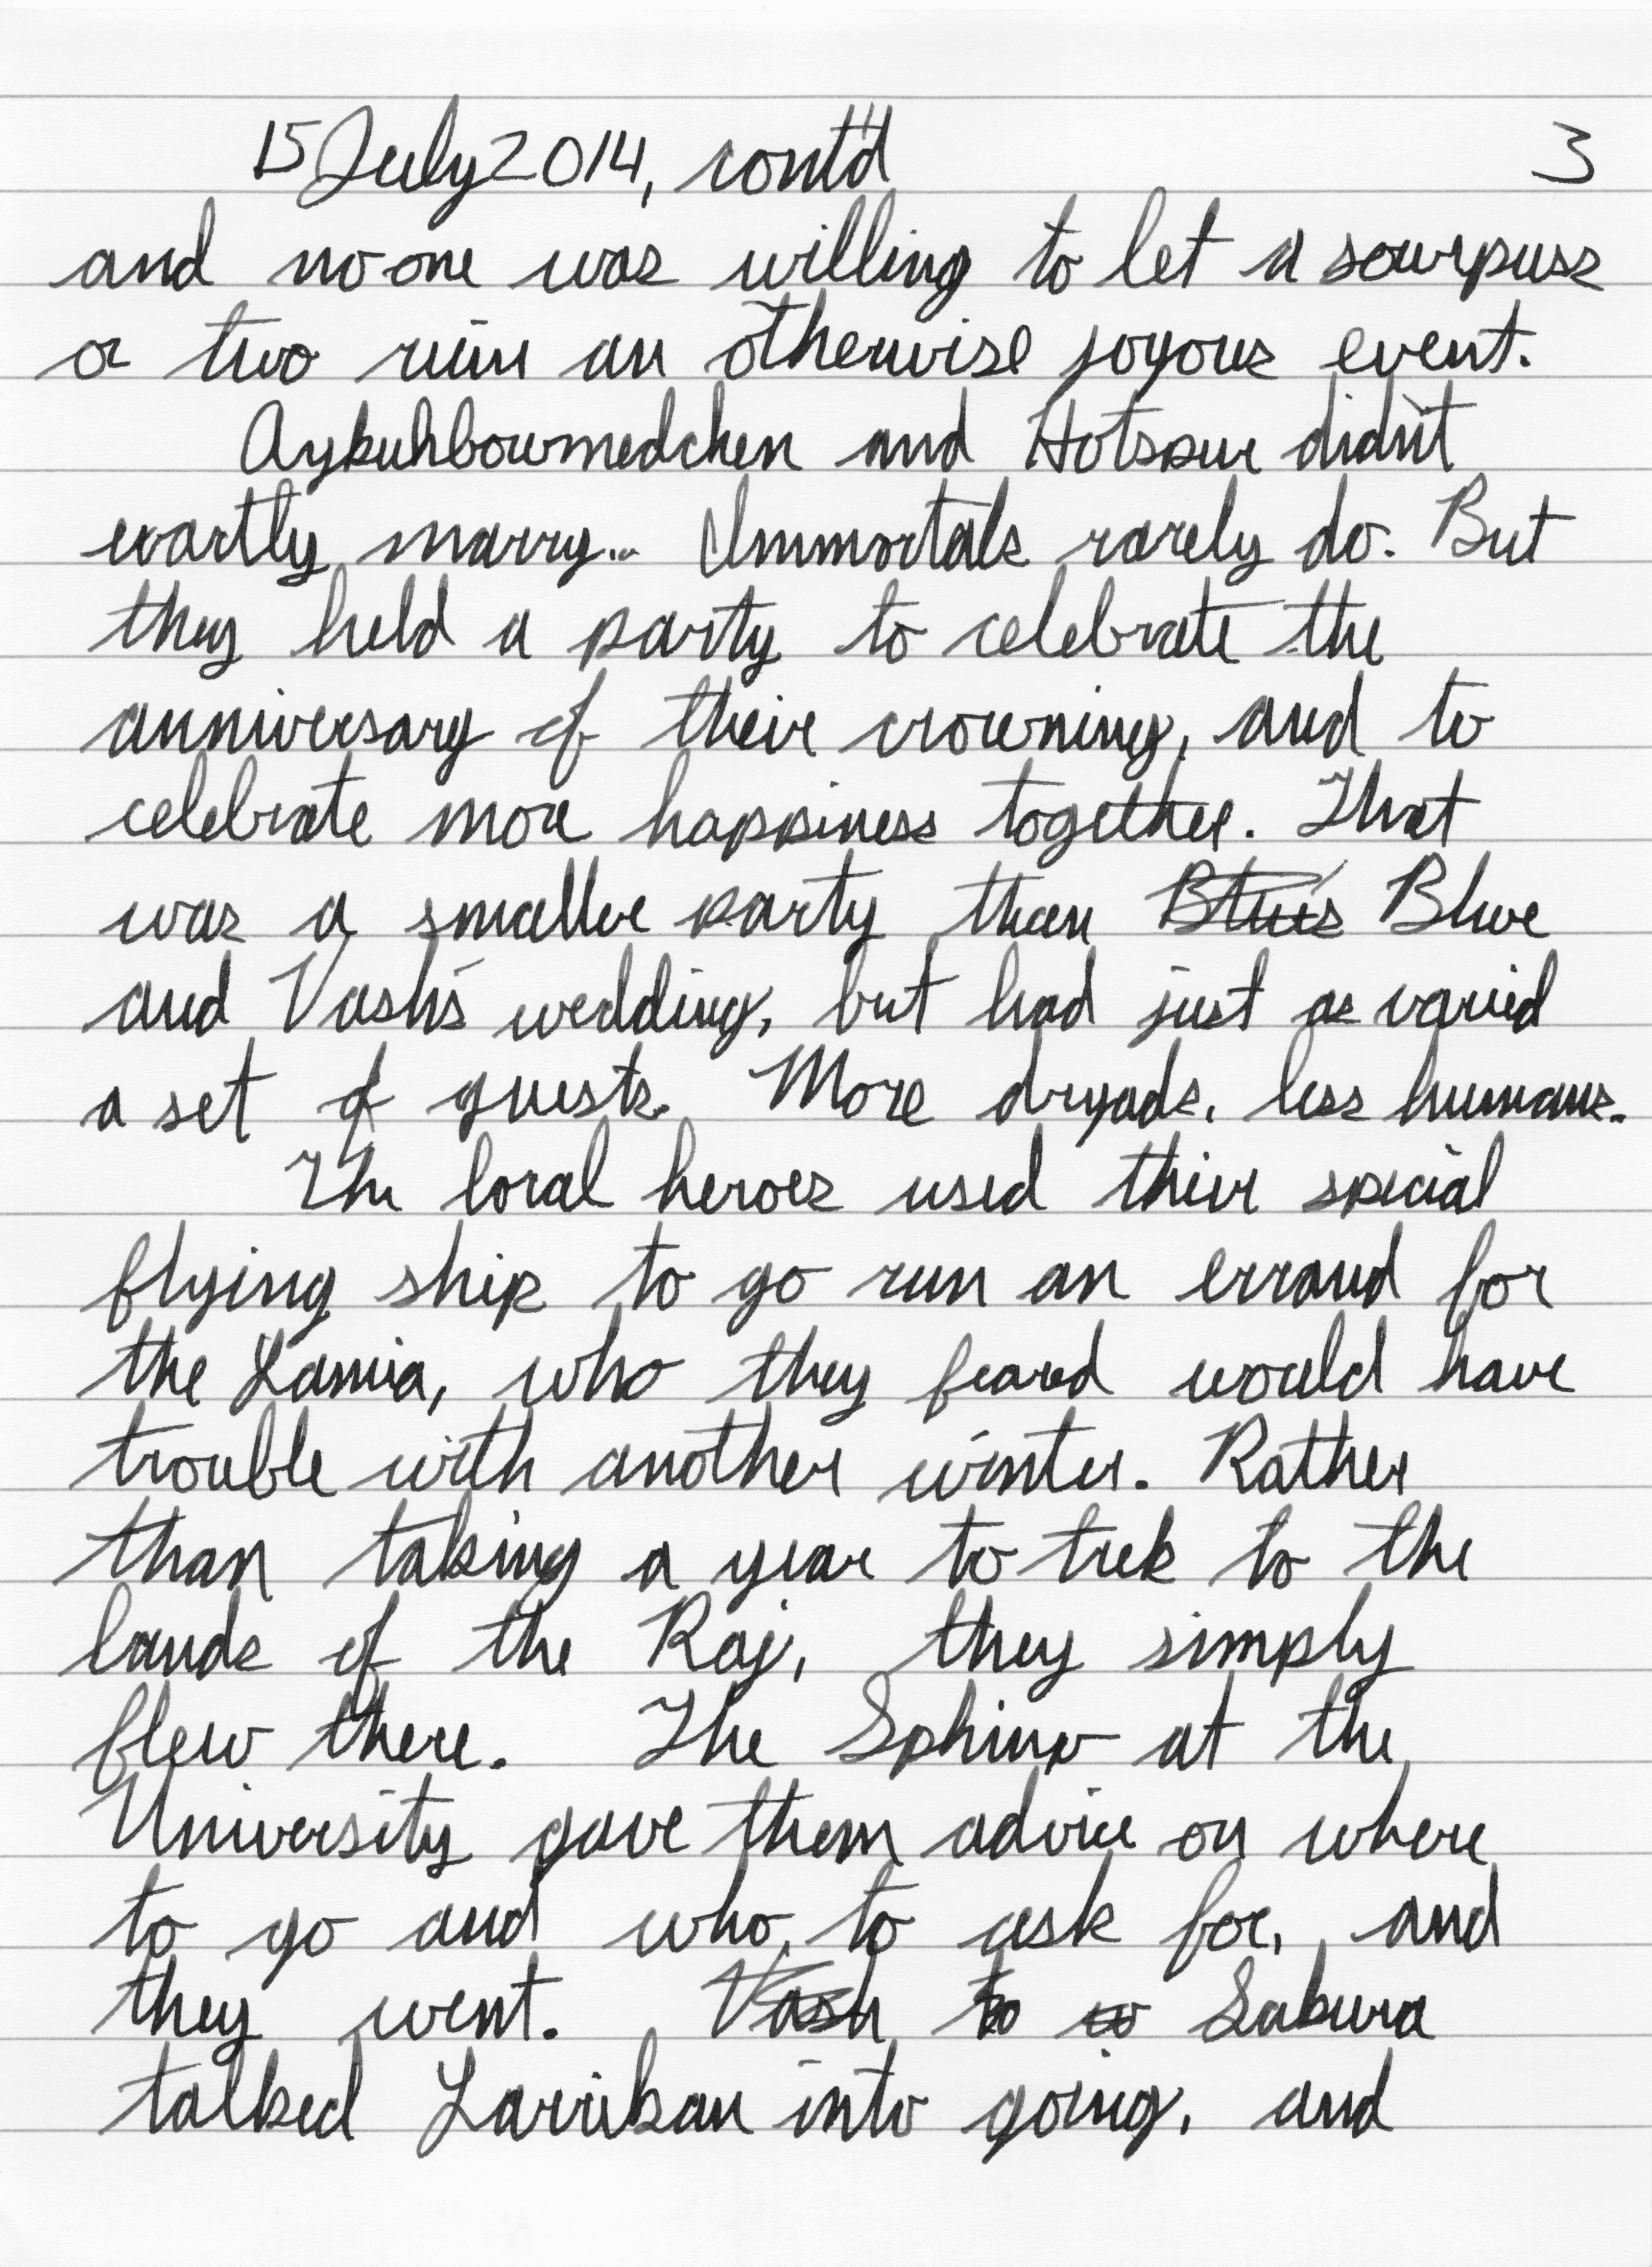 15 July 2014, cont'd 3
and no one was willing to let a sourpuss
or two ruin an otherwise joyous event.
Aykuhbowmedchen and Hotspur didn't
exactly marry... Immortals rarely do. But
they held a party to celebrate the
anniversary of their crowning, and to
celebrate more happiness together. That
was a smaller party than Blue
and Vash's wedding, but had just as varied
a set of guests. More dryads, less humans.
The local heroes used their special
flying ship to go run an errand for
the Lamia, who they feared would have
trouble with another winter. Rather
than taking a year to trek to the
lands of the Raj, they simply
flew there. The Sphinx at the
University gave them advice on where
to go and who to ask for, and
they went. Vash to Sakura
talked Larrikan into going, and